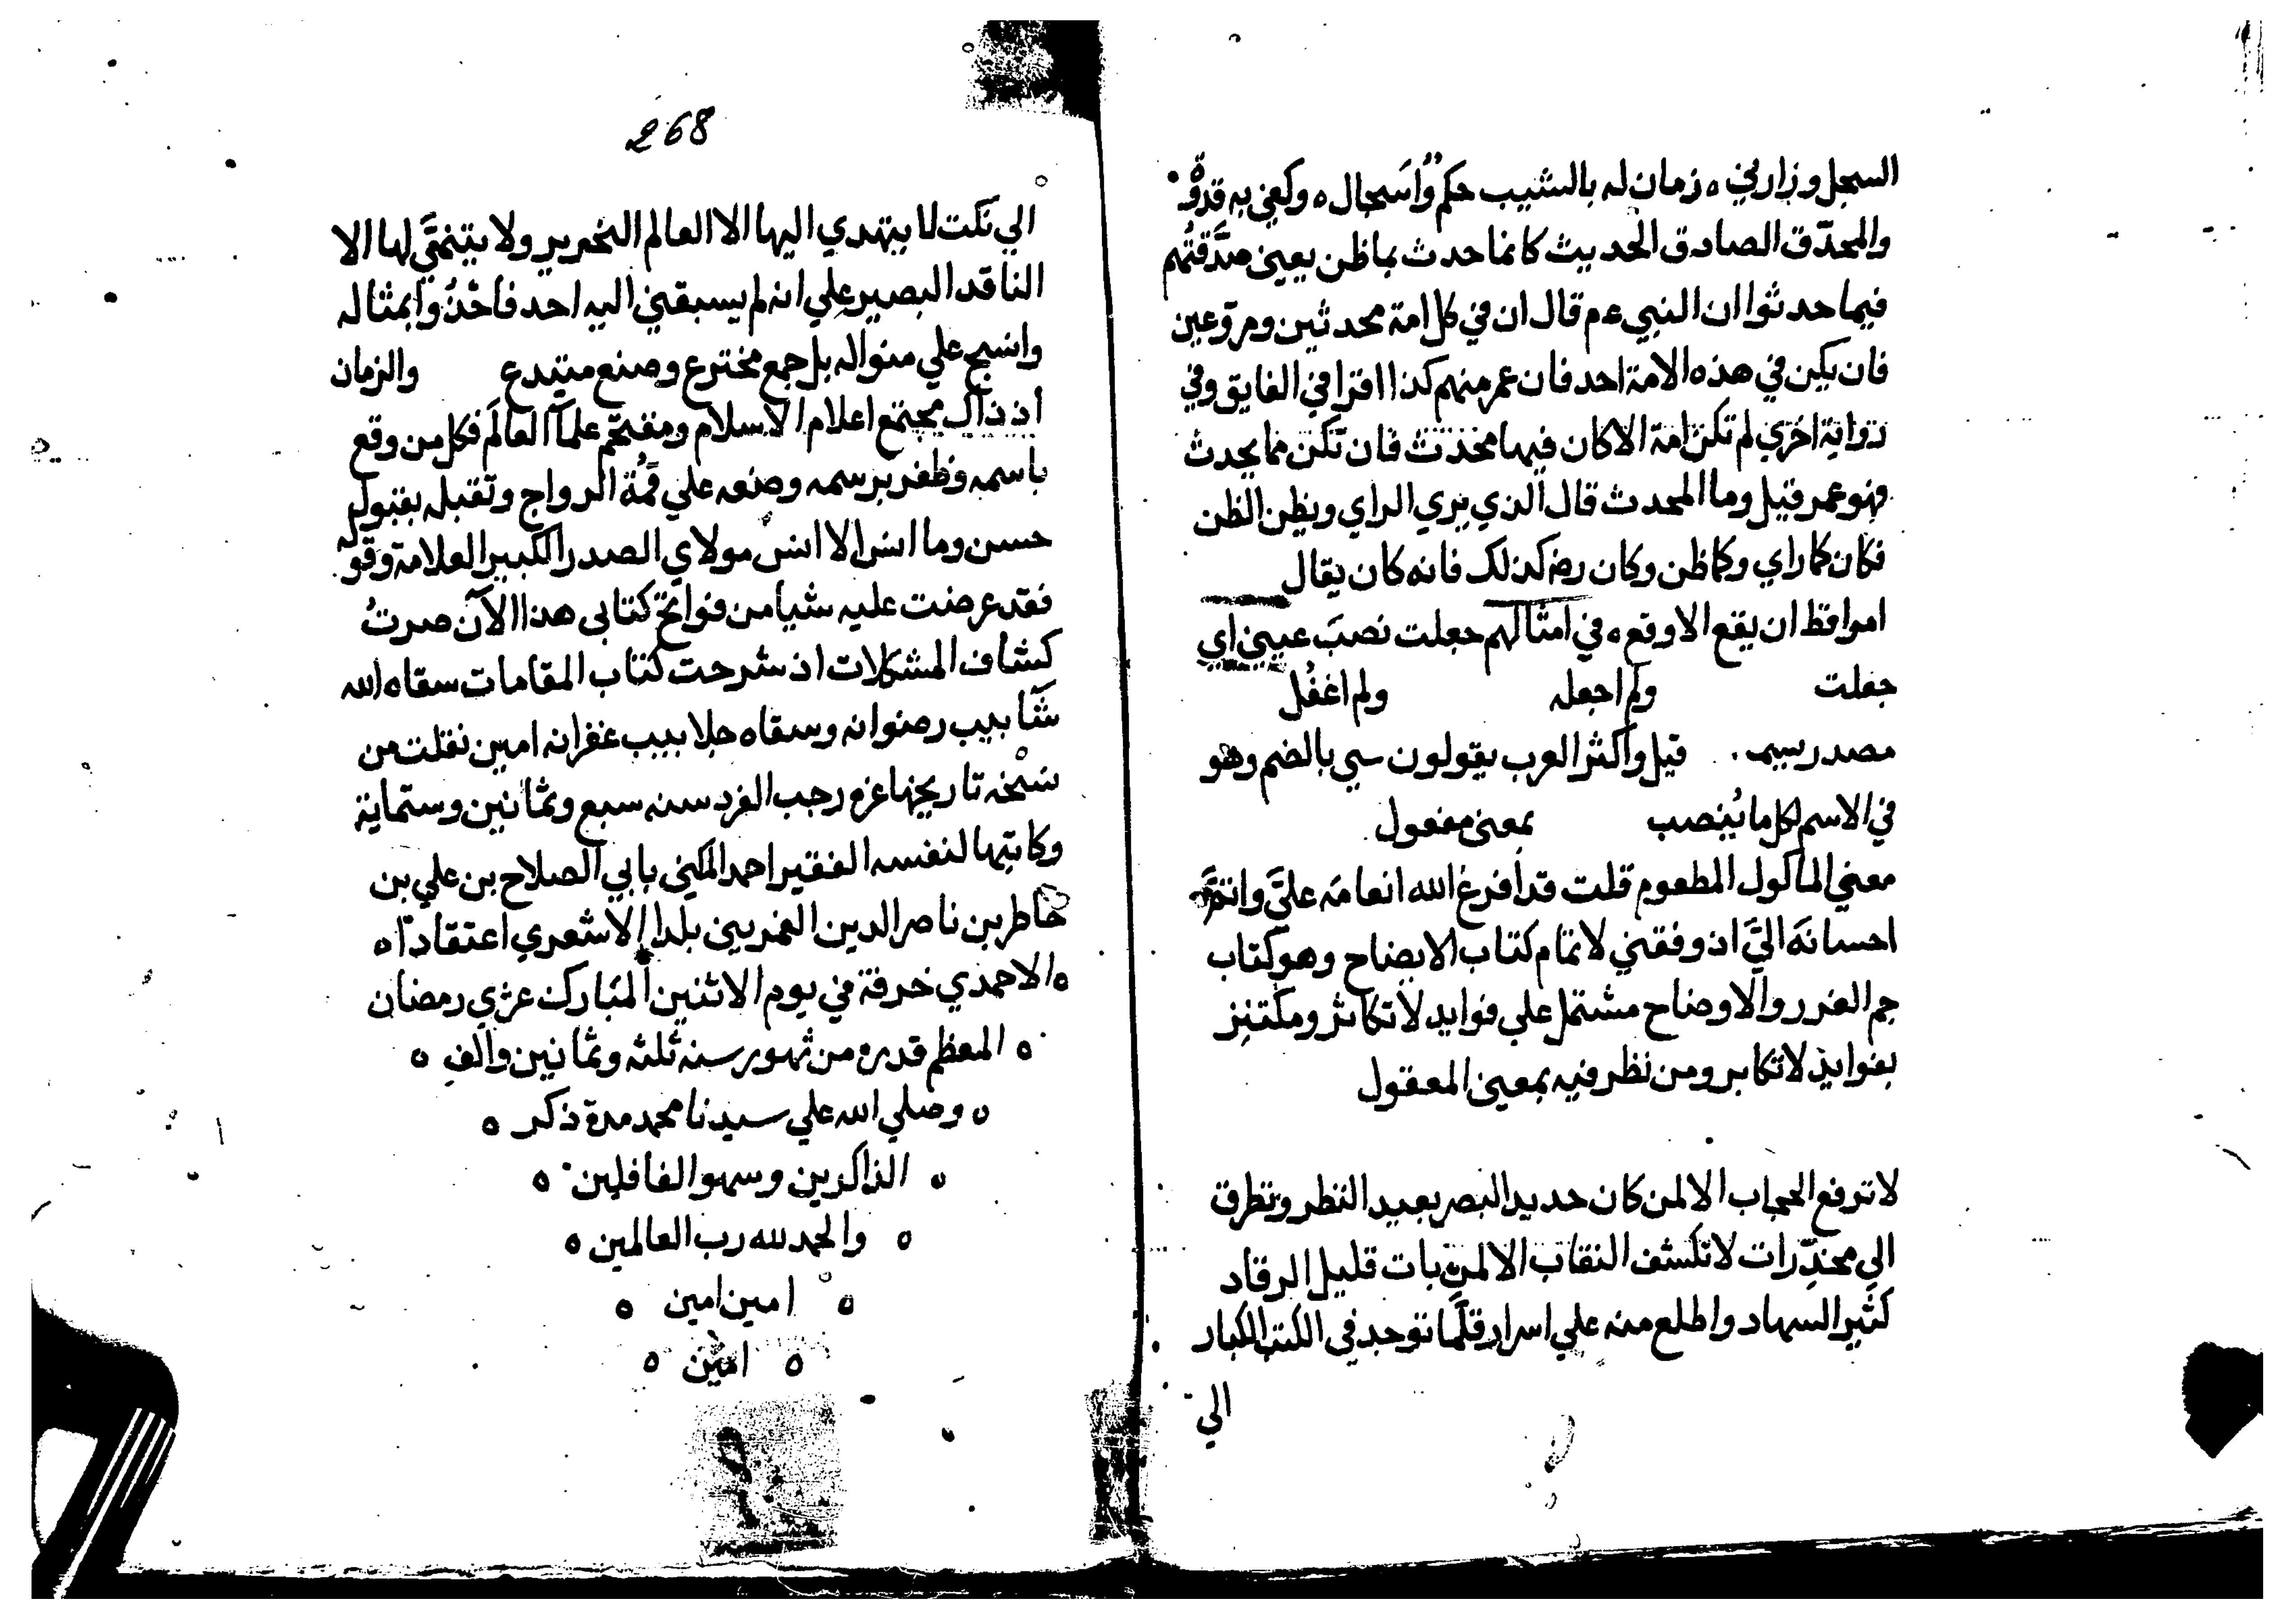 السجل وزارني ه زمان له بالشيب حكم واسجال ه وكفي به قدوة
والمحدّق الصادق الحديث كانما حدث بماظن يعني صدقتهم
فيما حدثوا ان النبي عم قال ان في كل امة محدثين ومروعين
فان يكن في هذه الامة احد فان عمر منهم كذا اقرا في الفايق وفي
رواية اخري لم تكن امة الا كان فيها محدث فان تكن مما يحدث
فهو عمر قيل وما المحدث قال الذي يري الراي ويظن الظن
فكان كما راي وكما ظن وكان رضه كذلك فانه كان يقال
امرا قط ان يقع الا وقع ه في امثالهم جعلت نصبَ عيني اي
جعلت ولم اجعله ولم اغفل
مصدر قيل واكثر العرب يقولون سي بالضم وهو
في الاسم لكل ما يُنصب بمعنى مفعول
معني الماكول المطعوم قلت قد افرغ الله انعامَه عليَّ وانتمَّ
احسانَه اليَّ اذ وفقني لاتمام كتاب الايضاح وهو كتاب
جم الغرر والاوضاح مشتمل علي فوايد لا تكاثر ومكتنز
بفوايد لا تكابر ومن نظر فيه بمعين المعقول
لا ترفع الحجاب الا لمن كان حديد البصر بعيد النظر وتطرق
الي مخدّرات لا تكشف النقاب الا لمن بات قليل الرقاد
كثير السهاد واطلع منه علي اسرار قلّما توجد في الكتب الكبار
الي
268
الي نكت لا يهتدي اليها الا العالم النحرير ولا يتنمّي لها الا
الناقد البصير علي انه لم يسبقني اليه احد فاحذُوا بمثاله
وانسج علي منواله بل جمع مخترع وصنع مبتدع والزمان
اذ ذاك مجتمع اعلام الاسلام ومفتخر علمآ العالَم فكل من وقع
باسمه وظفر برسمه وضعه علي قمّة الرواج وتقبله بقبول
حسن وما انس لا انس مولاي الصدر الكبير العلامة وقوله
فقد عرضت عليه شيا من فواتح كتابي هذا الآن صرتُ
كشاف المشكلات اذ شرحت كتاب المقامات سقاه الله
شآبيب رضوانه وسقاه جلابيب غفرانه امين نقلت من
نسخة تاريخها غره رجب الفرد سنه سبع وثمانين وستماية
وكاتبها لنفسه الفقير احمد المكني بابي الصلاح بن علي بن
خاطر بن ناصر الدين بلدا الاشعري اعتقادا ه
ه الاحمدي خرقة في يوم الاثنين المبارك رمضان
ه المعظم قدره من شهور سنه ثلثه وثمانين والف ه
ه وصلي الله علي سيدنا محمد مدة ذكر ه
ه الذاكرين وسهو الغافلين ه
ه والحمد لله رب العالمين ه
ه امين امين ه
ه امين ه